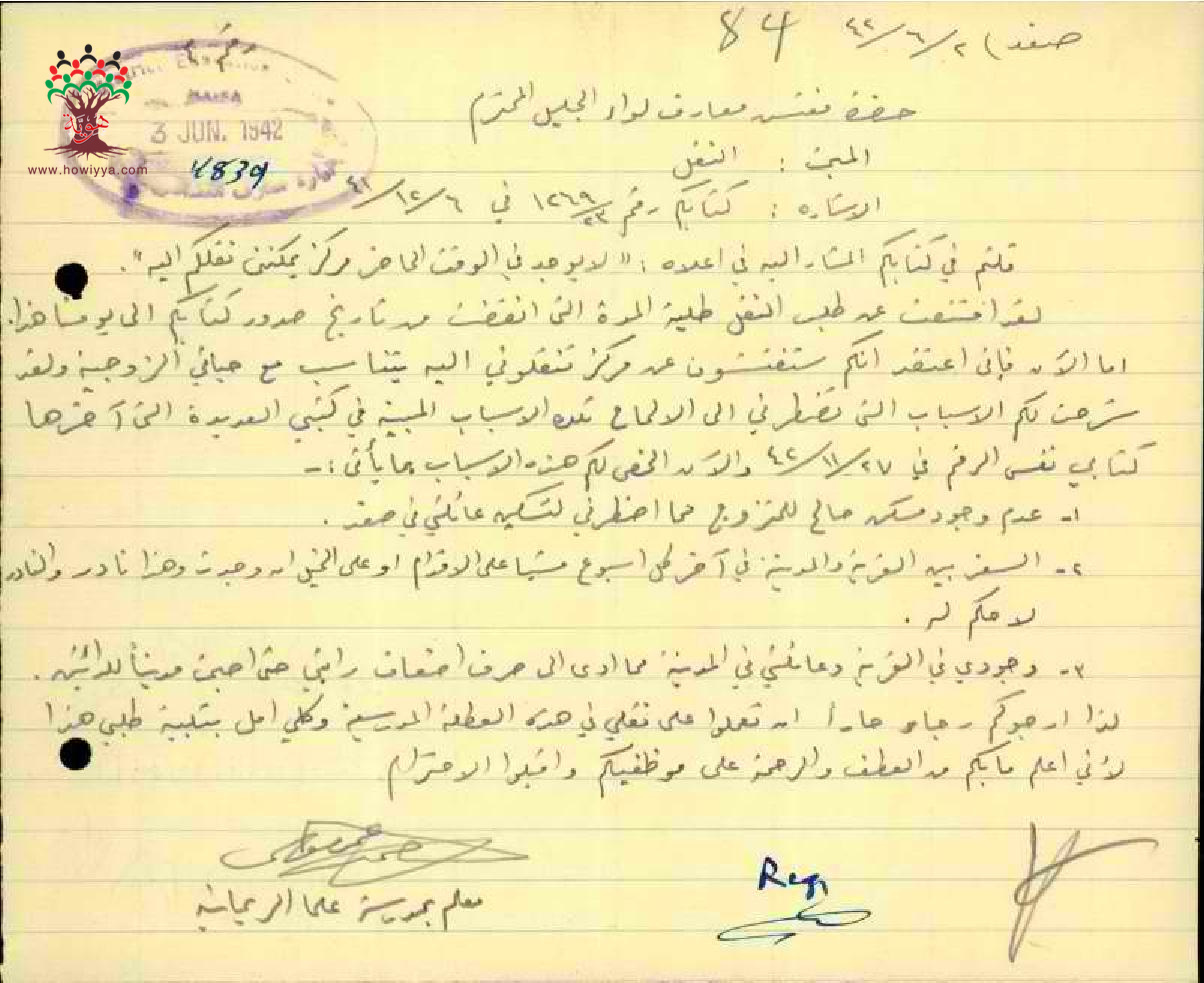 صفد) ٤٢/٦/٢ 84
HAIFA
3 JUN. 1942
4839
www.howiyya.com
حضرة مفتش معارف لواء الجليل المحترم
المبحث : النقل
الاشارة : كتابكم رقم ١٢٦٩/٢٣ في ٤١/١٢/٦
قلتم في كتابكم المشار اليه في اعلاه : "لا يوجد في الوقت الحاضر مركز يمكنني نقلكم اليه".
لقد عن طلب النقل طيلة المدة التي انقضت من تاريخ صدور كتابكم الى يومنا هذا.
اما الآن فإني اعتقد انكم ستفتشون عن مركز تنقلوني اليه يتناسب مع حياتي الزوجية ولقد
شرحت لكم الاسباب التي تضطرني الى الالحاح تلك الاسباب المبينة في كتبي العديدة التي آخرها
كتابي نفس الرقم في ٤٢/١١/٢٧ والآن الخص لكم هذه الاسباب بما يأتي :-
١- عدم وجود مسكن صالح للمتزوج مما اضطرني لتسكين عائلتي في صفد .
٢- السفر بين القرية والمدينة في آخر كل اسبوع مشيا على الاقدام او على الخيل ان وجدت وهذا نادر والنادر
لا حكم له .
٣- وجودي في القرية وعائلتي في المدينة مما ادى الى صرف اضعاف راتبي حتى اصبحت مديناً للدائنين .
لذا ارجوكم رجاء حاراً ان تعملوا على نقلي في هذه العطلة المدرسية وكلي امل بتلبية طلبي هذا
لأني اعلم ما بكم من العطف والرحمة على موظفيكم واقبلوا الاحترام
معلم بمدرسة علما الريحانية